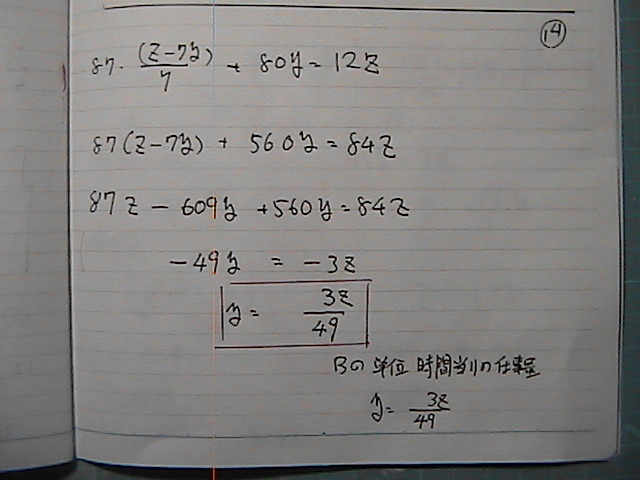 ⑭
87・(z-7y)/7 + 80y = 12z
87(z-7y) + 560y = 84z
87z - 609y + 560y = 84z
-49y = -3z
y = 3z/49
Bの単位時間当りの仕事量
y = 3z/49